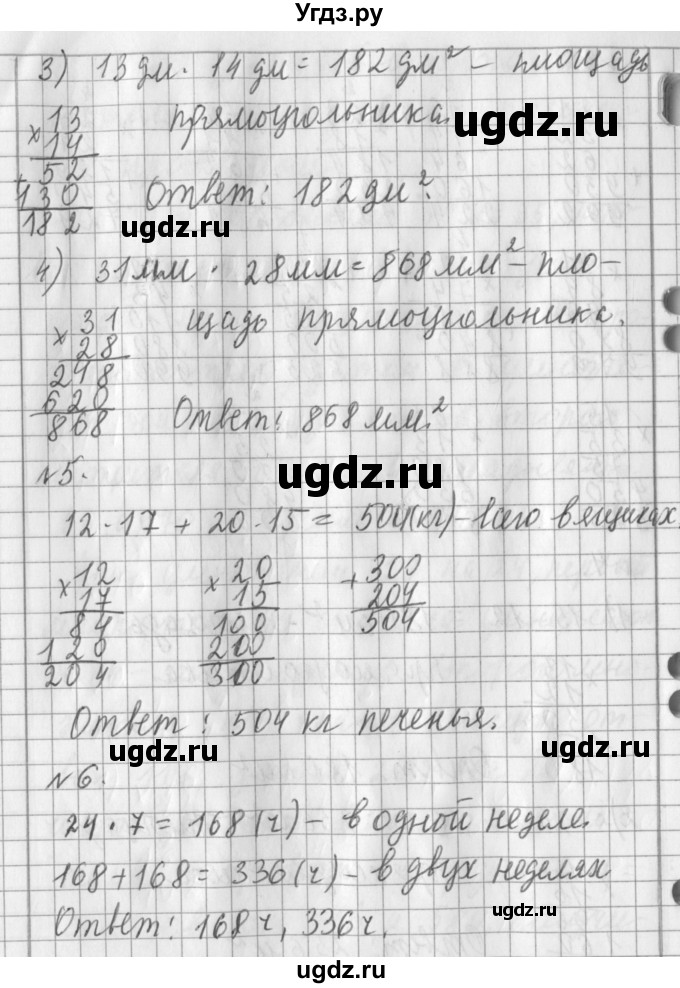 Угдз.ру
3) 13 дм · 14 дм = 182 дм² – площадь
прямоугольника.
ugdz.ru
× 13
14
+ 52
130
182
Ответ: 182 дм².
ugdz.ru
4) 31 мм · 28 мм = 868 мм² – пло-
щадь прямоугольника.
× 31
28
248
620
868
Ответ: 868 мм.²
№5.
ugdz.ru
12 · 17 + 20 · 15 = 504 (кг) – всего в ящиках.
× 12
17
84
120
204
× 20
15
100
200
300
+ 300
204
504
Ответ: 504 кг печенья.
ugdz.ru
ugdz.ru
№6.
24 · 7 = 168 (ч) – в одной неделе.
168 + 168 = 336 (ч) – в двух неделях
ugdz.ru
Ответ: 168 ч, 336 ч.
ugdz.ru